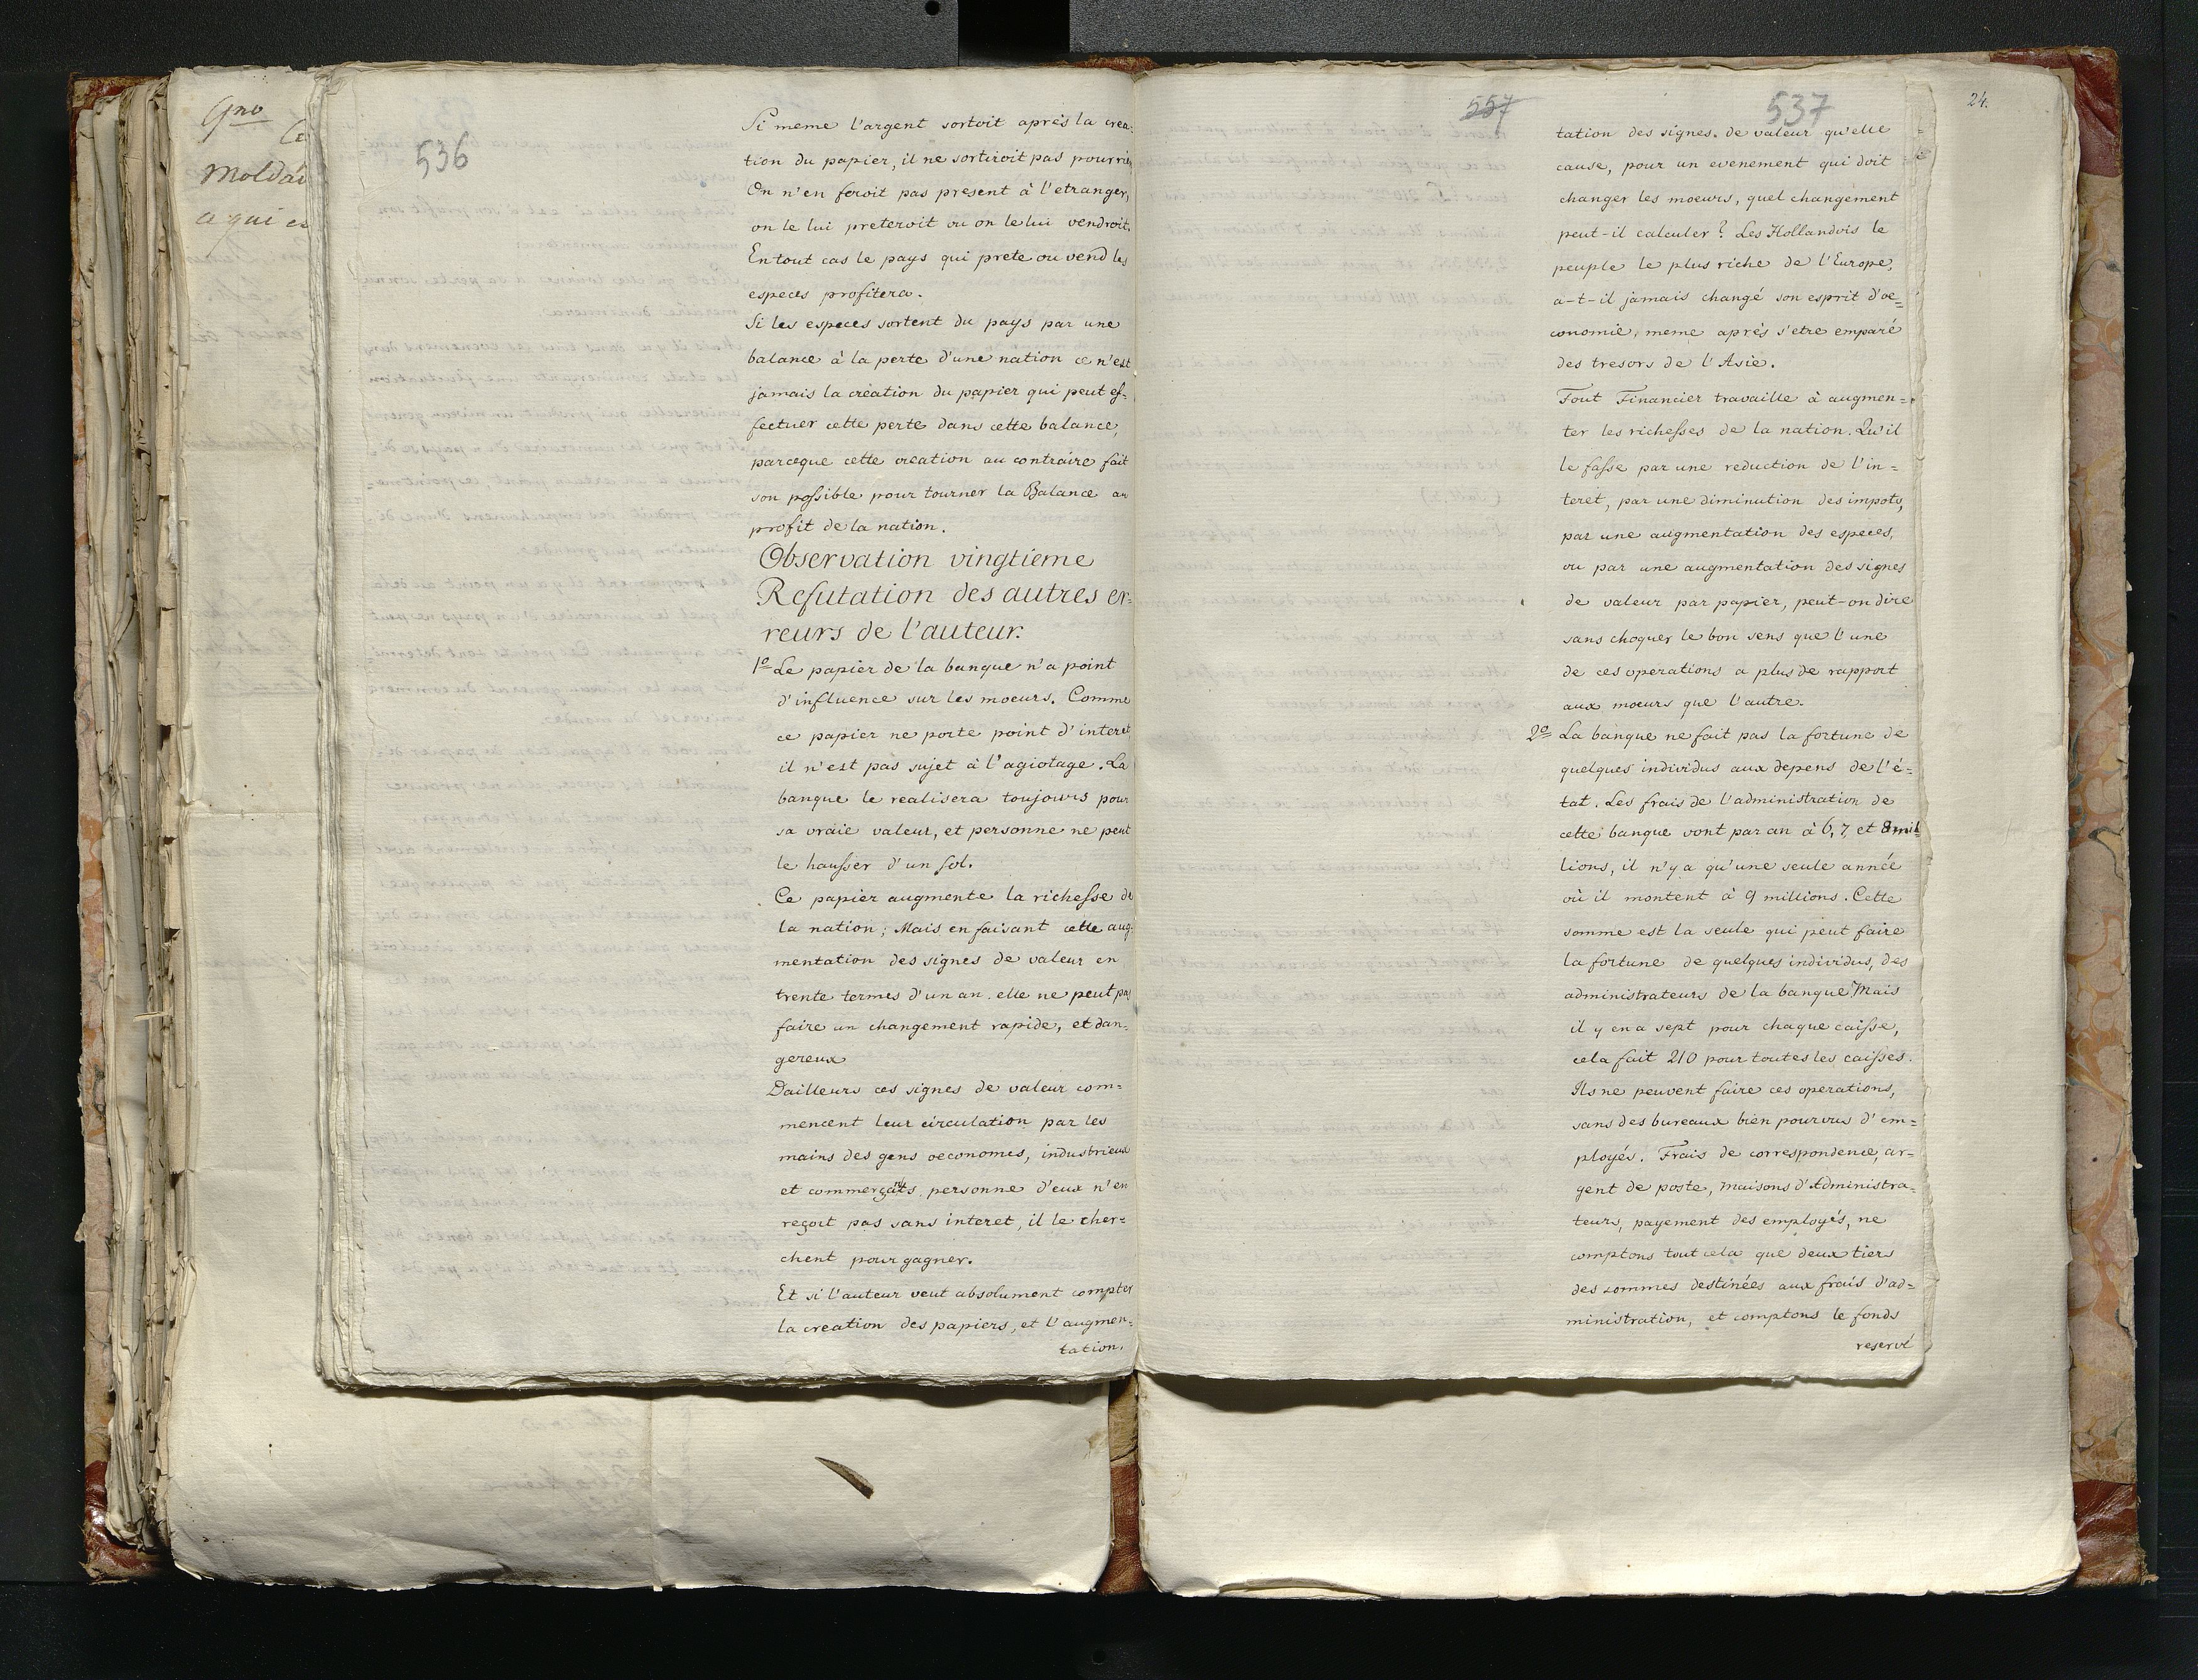 9no
Ce
Moldav
ce qui es
536
Si meme l'argent sortoit aprés la crea=
tion du papier, il ne sortiroit pas pour rien
On n'en feroit pas present à l'etranger,
on le lui preteroit ou on le lui vendroit.
En tout cas le pays qui prete ou vend les
especes profitera.
Si les especes sortent du pays par une
balance à la perte d'une nation ce n'est
jamais la création du papier qui peut ef=
fectuer cette perte dans cette balance,
parceque cette creation au contraire fait
son possible pour tourner la Balance au
profit de la nation.
Observation vingtieme
Refutation des autres er=
reurs de l'auteur.
1º Le papier de la banque n'a point
d'influence sur les moeurs. Comme
ce papier ne porte point d'interet
il n'est pas sujet à l'agiotage. La
banque le realisera toujours pour
sa vraie valeur, et personne ne peut
le hausser d'un sol.
Ce papier augmente la richesse de
la nation; Mais en faisant cette aug=
mentation des signes de valeur en
trente termes d'un an. elle ne peut pas
faire un changement rapide, et dan=
gereux
Dailleurs ces signes de valeur com=
mencent leur circulation par les
mains des gens oeconomes, industrieux
et commerçants personne d'eux n'en
reçoit pas sans interet, il le cher=
chent pour gagner.
Et si l'auteur veut absolument compter
la creation des papiers, et l'augmen=
tation.
557
537
24.
tation des signes de valeur qu'elle
cause, pour un evenement qui doit
changer les moeurs, quel changement
peut-il calculer? Les Hollandois le
peuple le plus riche de l'Europe,
a-t-il jamais changé son esprit d'oe=
conomie, meme aprés s'etre emparé
des tresors de l'Asie.
Tout Financier travaille à augmen=
ter les richesses de la nation. Qu'il
le fasse par une reduction de l'in=
teret, par une diminution des impots,
par une augmentation des especes,
ou par une augmentation des signes
de valeur par papier, peut-on dire
sans choquer le bon sens que l'une
de ces operations a plus de rapport
aux moeurs que l'autre.
2º La banque ne fait pas la fortune de
quelques individus aux depens de l'é=
tat. Les frais de l'administration de
cette banque vont par an à 6, 7, et 8 mil
lions, il n'y a qu'une seule année
où il montent à 9 millions. Cette
somme est la seule qui peut faire
la fortune de quelques individus, des
administrateurs de la banque Mais
il y en a sept pour chaque caisse,
cela fait 210 pour toutes les caisses.
Ils ne peuvent faire ces operations,
sans des bureaux bien pourvus d'em=
ployés. Frais de correspondence, ar=
gent de poste, maisons d'Administra=
teurs, payement des employés, ne
comptons tout cela que deux tiers
des sommes destinées aux frais d'ad=
ministration, et comptons le fonds
reservé